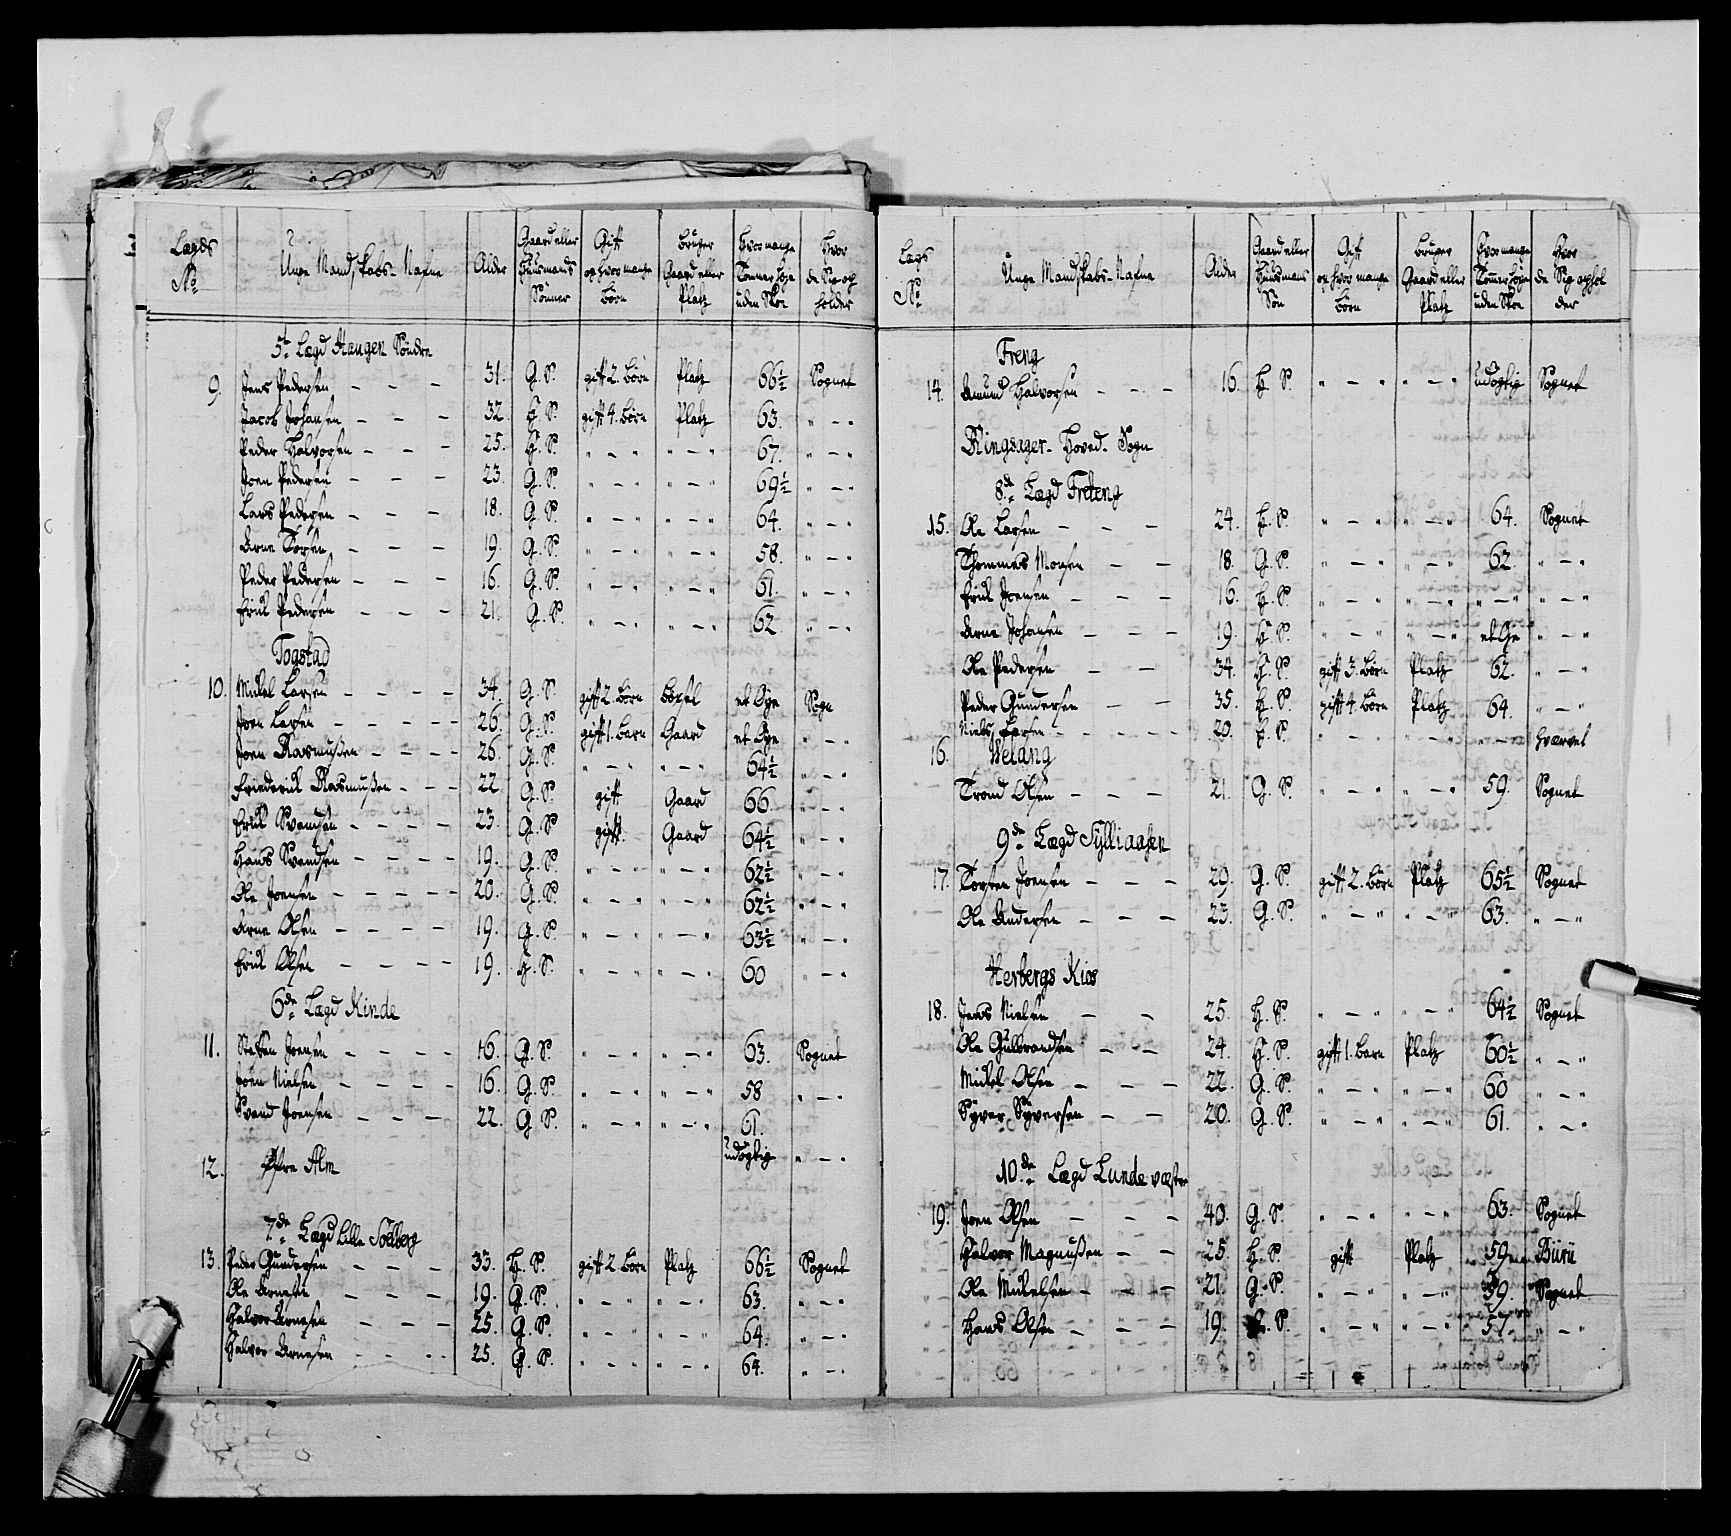 Lægds No | Unge Mandskabs-Nafne | Alder | Gaard eller Huusmands Sönner | Gift og hvor mange börn | bruger Gaard eller Platz | Hvor mange Tommer höje uden Skoe | Hvor de Sig op holder
5te Lægd Haugen Söndre
9. Jens Pedersen — — — 31. G. S. gift 2. börn Platz 66½ Sognet
Jacob Johansen — — — 32. H. S. gift 4. börn Platz 63. " — "
Peder Halvorsen — — — 25. H. S. " — " " — " 67. " — "
Joen Pedersen — — — 23. G. S. " — " " — " 69½ " — "
Lars Pedersen — — — 18. G. S. " — " " — " 64. " — "
Arne Torsen — — — 19. G. S. " — " " — " 58. " — "
Peder Pedersen — — — 16. G. S. " — " " — " 61. " — "
Erick Pedersen — — — 21. G. S. " — " " — " 62 " — "
Togstad
10. Mickel Larsen — — — 34. G. S. gift 2. börn böxel et Öye Sogn
Joen Larsen — — — 26. G. S. gift 1. barn Gaard et Öye " — "
Joen Rasmußen — — — 26. G. S. " — " " — " 64½ " — "
Friederick Rasmußen — — — 22. G. S. gift Gaard 66. " — "
Erick Svendsen — — — 23. G. S. gift Gaard 64½ " — "
Hans Svendsen — — — 19. G. S. " — " " — " 62½ " — "
Ole Joensen — — — 20. G. S. " — " " — " 62½ " — "
Arne Olsen — — — 19. G. S. " — " " — " 63½ " — "
Erick Olsen — — — 19. H. S. " — " " — " 60 " — "
6de Lægd Kinde
11. Steffen Joensen — — — 16. G. S. " — " " — " 63. Sognet
Joen Nielsen — — — 16. G. S. " — " " — " 58 " — "
Svend Joensen — — — 22. G. S. " — " " — " 61. " — "
12. Alm udögtig " — "
7de Lægd Lille Sollberg
13. Peder Gundersen — — — 33. H. S. gift 2. börn Platz 66½ Sognet
Ole Arnesen — — — 19. G. S. " — " " — " 63. " — "
Halvor Arnesen — — — 25. G. S. " — " " — " 64. " — "
Halvor Arnesen — — — 25. G. S. " — " " — " 64. " — "
Lægs No | Unge Mandskabs-Nafne | Alder | Gaard eller Huusmans Sön | Gift og hvor mange börn | Bruger Gaard eller Platz | Hvor mange Tommer höje uden Skoe | Hvor de Sig ophol der
Freng
14. Amund Halvorsen — — — 16. H. S. " — " " — " udögtig Sognet
Ringsager Hoved-Sogn
8de Lægd Freteng
15. Ole Larsen — — — 24. H. S. " — " " — " 64. Sognet
Thommas Monsen — — 18. G. S. " — " " — " 62. " — "
Erick Joensen — — — 16. H. S. " — " " — " " — " " — "
Arne Johansen — — — 19. H. S. " — " " — " et Öye " — "
Ole Pedersen — — 34. H. S. gift 3. börn Platz 62. " — "
Peder Gundersen — — 35. H. S. gift 4. börn Platz 64. " — "
Niels Larsen — — — 20. H. S. " — " " — " " — " hvervet
16. Velang
Trond Olsen — — — 21. G. S. " — " " — " 59. Sognet
9de Lægd Sylliaasen
17. Torsten Joensen — — — 29. G. S. gift 2. börn Platz 65½ Sognet
Ole Andersen — — — 23. G. S. " — " " — " 63. " — "
Herbergs Kiös
18. Jens Nielsen — — 25. H. S. " — " " — " 64½ Sognet
Ole Gulbrandsen — — 24. H. S. gift 1. barn Platz 60½ " — "
Mickel Olsen — — — 22. G. S. " — " " — " 60 " — "
Syver Syversen — — 20. G. S. " — " " — " 61. " — "
10de Lægd Lunde væstre
19. Joen Olsen — — — 40. G. S. " — " " — " 63. Sognet
Halvor Magnußen — — 25. H. S. gift Platz 59 Biirii
Ole Mickelsen — — — 21. G. S. " — " " — " 59. Sognet
Hans Olsen — — — 19. S. " — " " — " 57. " — "